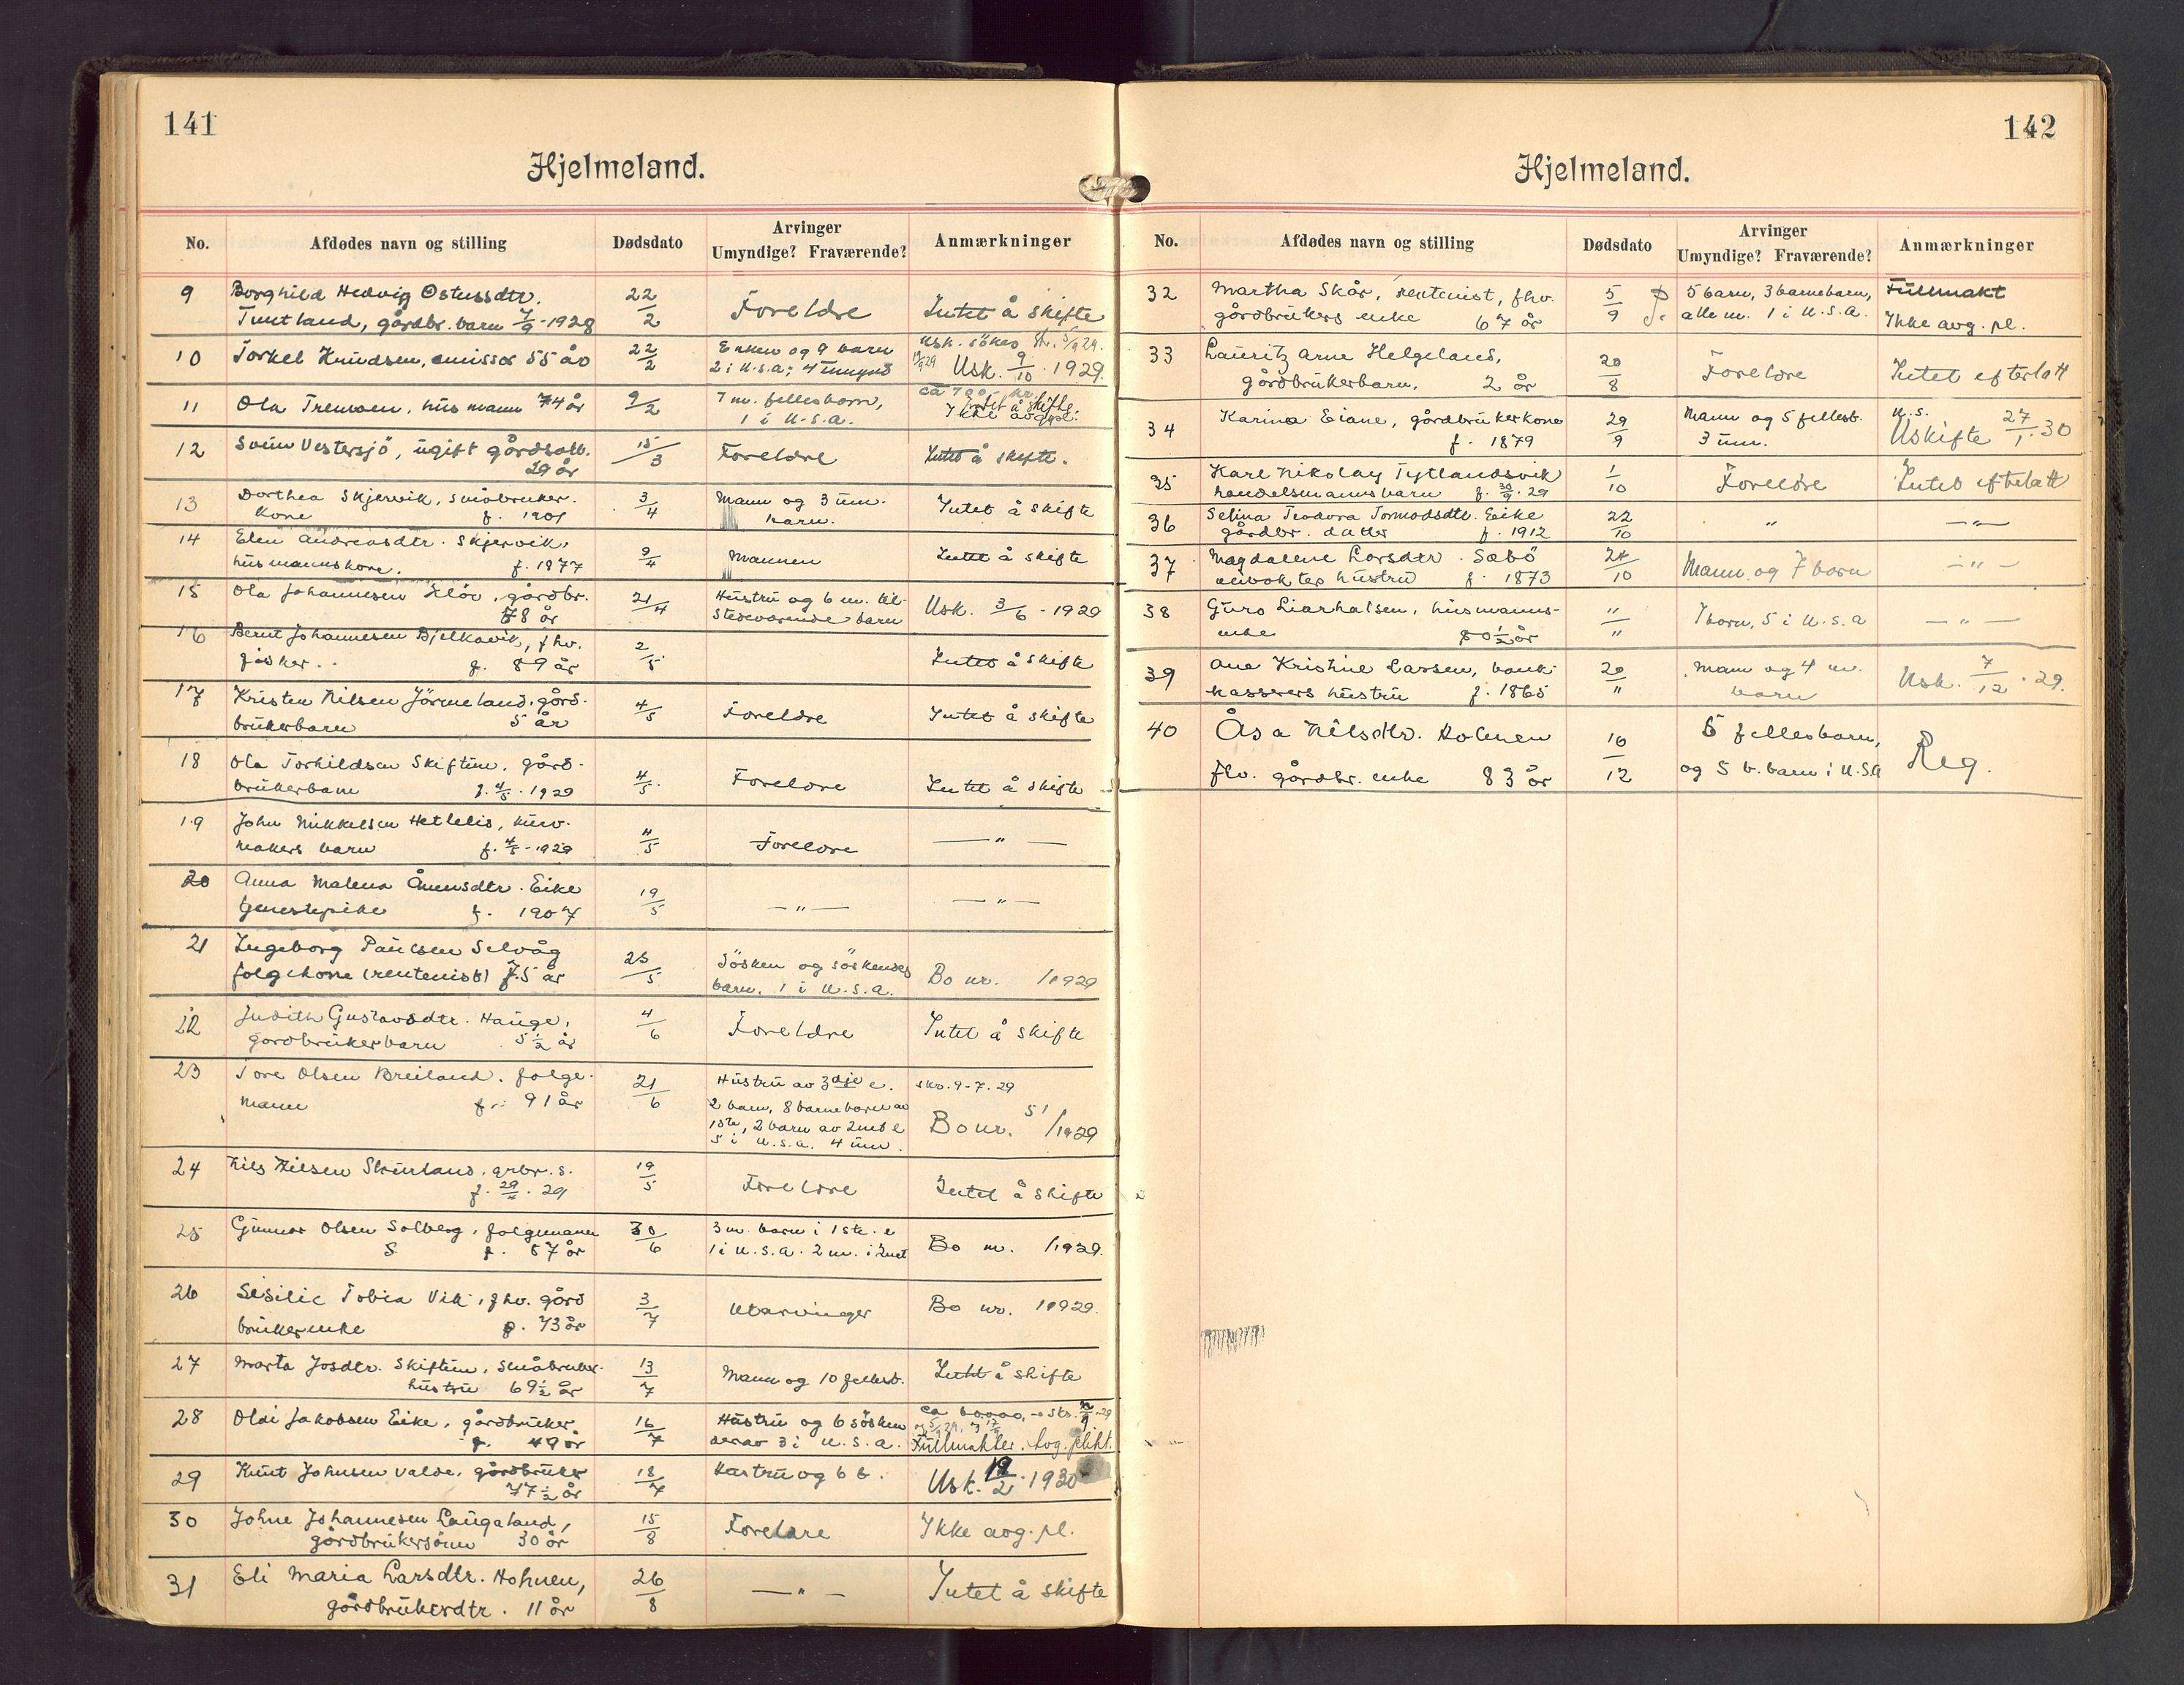 141
Hjelmeland.
No. Afdødes navn og stilling Dødsdato Arvinger Umyndige? Fraværende? Anmærkninger
9 Borghild Hedvig Østussdtr. 22/2 Foreldre Intet å skifte
Tuntland, gårdbr. barn 7/9-1928
10 Torkel Knudsen, emissær 55 år 22/2 Enken og 9 barn Usk. søkes
2 i U.S.A; 4 umynd Usk. 9/10 . 1929.
11 Ola husmann 74 år 9/2 7 m. fellesbarn, Intet å skifte.
1 i U.S.A. Ikke avg.pl.
12 Svein Vestersjö, ugift gårdsarb. 15/3 Foreldre Intet å skifte.
29 år
13 Dorthea Skjervik, småbruker- 3/4 Mann og 3 um. Intet å skifte
kone f. 1901 barn.
14 Elen Andreasdtr. Skjervik, 9/4 Mannen Intet å skifte
husmannskone. f. 1877
15 Ola Johannesen gårdbr. 21/4 Hustru og 6 m. til- Usk. 3/6 - 1929
78 år stedeværende barn
16 Bernt Johannesen Bjelkavik, fhv. 2/5 Intet å skifte
fisker. f. 89 år
17 Kristen Nilsen Jörmeland, gård- 4/5 Foreldre Intet å skifte
brukerbarn 5 år
18 Ola Torkildsen Skiftun, gård- 4/5 Foreldre Intet å skifte
brukerbarn f. 4/5 . 1929
19 John Mikkelsen Hetlelid, kurv- 11/5 Foreldre — " —
makers barn f. 4/5 - 1929
20 Anna Malena Åmunsdtr. Eike 19/5 — " — — " —
tjenestepike f. 1907
21 Ingeborg Paulsen Selvåg 25/5 Sösken og söskende Bo nr. /1929
folgekone (rentenist) 75 år barn. 1 i U.S.A.
22 Judith Gustavsdtr. Hauge, 4/6 Foreldre Intet å skifte
gårdbrukerbarn 5 1/2 år
23 Tore Olsen Breiland. folge- 21/6 Hustru av 3dje e. skr. 9-7.29
mann f. 91 år 2 barn, 8 barnebarn av Bo nr. 51/1929
1ste, 2 barn av 2net e
5 i U.S.A. 4 um.
24 Nils Nilsen Steinland, grbr. s. 19/5 Foreldre Intet å skifte
f. 29/4 . 29
25 Gunnar Olsen Solberg, folgemann 30/6 3 m. barn i 1ste. e Bo nr. /1929.
f. 87 år 1 i U.S.A. 2 m. i 2net
26 Sesilie Tobia Vik, fhv. gård 3/7 Utarvinger Bo nr. /1929.
brukerenke f. 73 år
27 Marta Josdtr. Skiftun, småbruker- 13/7 Mann og 10 fellesb. Intet å skifte
hustru 69 1/2 år
28 Olai Jakobsen Eike, gårdbruker 16/7 Hustru og 6 sösken
f. 49 år derav 3 i U.S.A. Fullmakter. Avg.plikt.
29 Knut Johnsen Valde, gårdbruker 18/7 Hustru og 6 b. Usk. 19/2 . 1930
77 1/2 år
30 Johne Johannesen Laugaland, 15/8 Foreldre Ikke avg.pl.
gårdbrukersönn 30 år
31 Eli Maria Larsdtr. Holmen, 26/8 — " — Intet å skifte
gårdbrukerdtr. 11 år
142
Hjelmeland.
No. Afdødes navn og stilling Dødsdato Arvinger Umyndige? Fraværende? Anmærkninger
32 Martha Skår, rentenist, fhv. 5/9 5 barn, 3 barnebarn, Fullmakt
gårdbrukers enke 67 år alle m. 1 i U.S.A. Ikke avg.pl.
33 Lauritz Arne Helgeland, 20/8 Foreldre Intet efterlatt
gårdbrukerbarn. 2 år
34 Karina Eiane, gårdbrukerkone 29/9 Mann og 5 fellesb. U.S.
f. 1879 3 um. Uskifte 27/1.30
35 Karl Nikolay Tytlandsvik 1/10 Foreldre Intet efterlatt
handelsmannsbarn f. 30/9 . 29
36 Selina Teodora Tormodsdtr. Eike 22/10 " — " —
gårdbr. datter f. 1912
37 Magdalene Larsdtr. Sæbö 24/10 Mann og 7 barn — " —
hustru f. 1873
38 Guro Liarhalsen, husmanns- "/" 7 barn, 5 i U.S.A — " —
enke 80 1/2 år
39 Ana Kristine Larsen, bank- 20/" Mann og 4 m. Usk. 7/12 . 29.
kasserers hustru f. 1865 barn
40 Åsa Nilsdtr. Holmen 16/12 5 fellesbarn, Reg.
fhv. gårdbr. enke 83 år og 5 b.barn i U.S.A